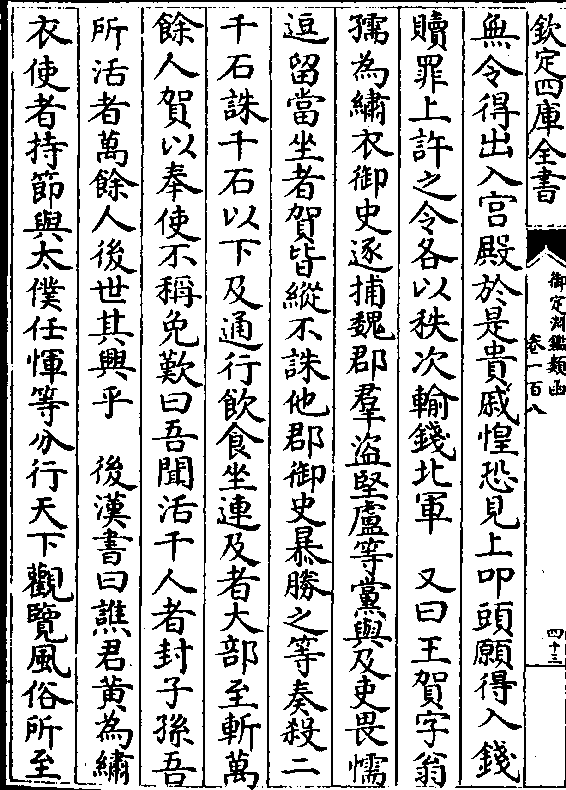 欽定四庫全書
御定淵鑑類函
卷一百八
四十三
無令得出入宫殿於是貴戚惶恐見上叩頭願得入錢
贖罪上許之令各以秩次輸錢北軍　又曰王賀字翁
孺為繡衣御史逐捕魏郡羣盗堅盧等黨與及吏畏懦
逗留當坐者賀皆縱不誅他郡御史暴勝之等奏殺二
千石誅千石以下及通行飲食坐連及者大部至斬萬
餘人賀以奉使不稱免歎曰吾聞活千人者封子孫吾
所活者萬餘人後世其興乎　後漢書曰譙君黄為繡
衣使者持節與太僕任惲等分行天下觀覽風俗所至